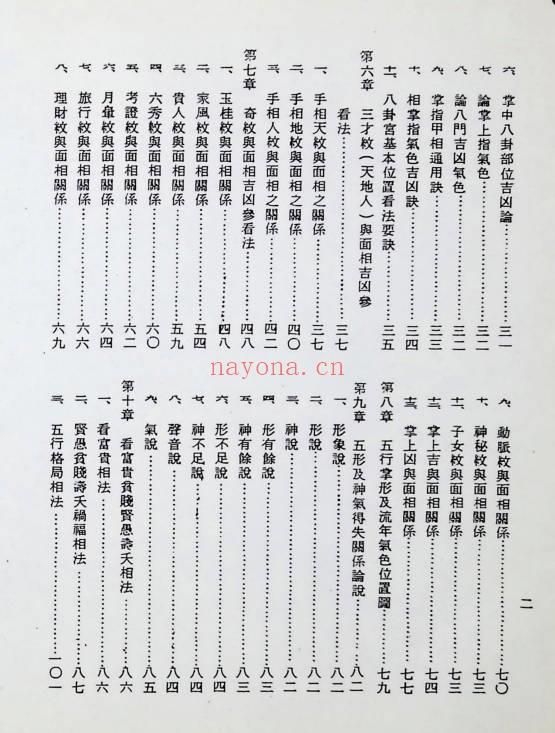 六、掌中八卦部位吉凶論……………三一
七、論掌上指氣色……………三二
八、論八門吉凶氣色……………三二
九、掌指甲相通用訣……………三三
十、相掌指氣色吉凶訣……………三四
十一、八卦宮基本位置看法要訣……………三五
第六章　三才枚（天地人）與面相吉凶參
看法……………三七
一、手相天枚與面相之關係……………三七
二、手相地枚與面相之關係……………四〇
三、手相人枚與面相之關係……………四二
第七章　奇枚與面相吉凶參看法……………四八
一、玉桂枚與面相關係……………四八
二、家風枚與面相關係……………五四
三、貴人枚與面相關係……………五九
四、六秀枚與面相關係……………六〇
五、考證枚與面相關係……………六二
六、月暈枚與面相關係……………六四
七、旅行枚與面相關係……………六六
八、理財枚與面相關係……………六九
九、動脈枚與面相關係……………七〇
十、神秘枚與面相關係……………七三
十一、子女枚與面相關係……………七三
十二、掌上吉與面相關係……………七四
十三、掌上凶與面相關係……………七七
第八章　五行掌形及流年氣色位置圖……………七九
第九章　五形及神氣得失關係論說……………八二
一、形象說……………八二
二、形說……………八二
三、神說……………八二
四、形有餘說……………八三
五、神有餘說……………八三
六、形不足說……………八四
七、神不足說……………八四
八、聲音說……………八四
九、氣說……………八五
第十章　看富貴貧賤賢愚壽夭相法……………八六
一、看富貴相法……………八六
二、賢愚貧賤壽夭禍福相法……………八七
三、五行格局相法……………一〇一
二
nayona.cn